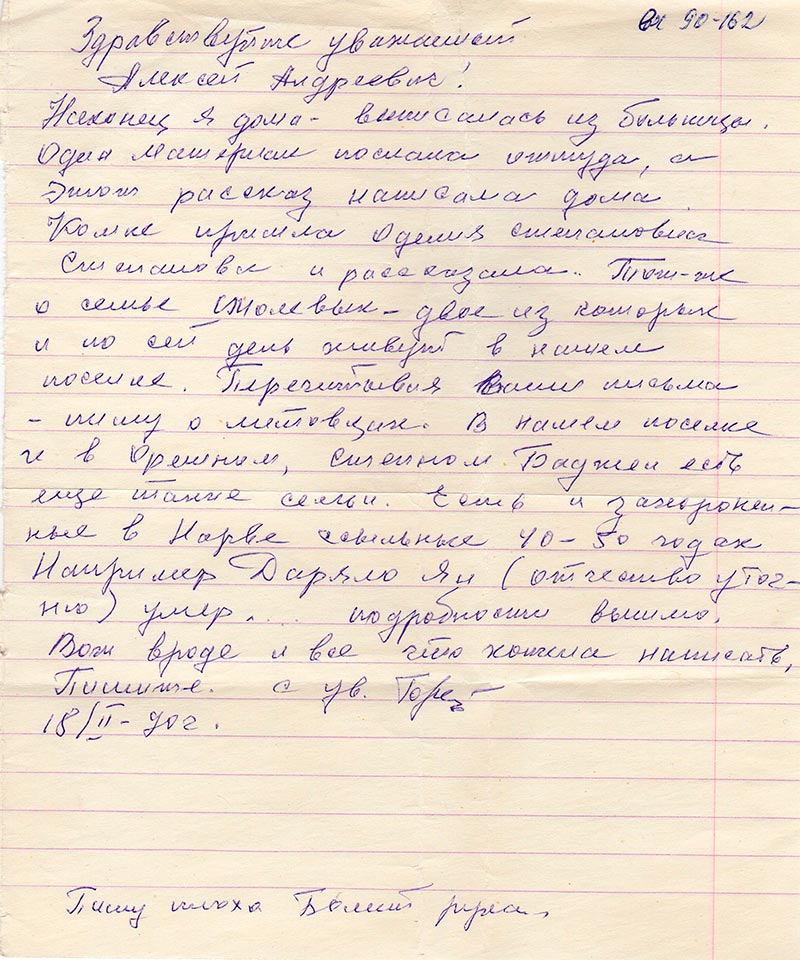 вх 90-162
Здравствуйте уважаемый
Алексей Андреевич!
Наконец я дома - выписалась из больницы.
Один материал послала оттуда, а
этот рассказ написала дома.
Комне пришла Оделия Степановна
Степановна и рассказала.. Тот-же
о семье - двое из которых
и по сей день живут в нашем
поселке. Перечитывая Ваши письма
- пишу о литовцах. В нашем поселке
и в Орешном, Степном Баджеи есть
еще такие семьи. Есть и захоронен-
ные в Нарве ссыльные 40-50 годах
Например Даряло Ян (отчество уточ-
ню) умер.... подробности вышлю.
Вот вроде и все что хотела написать,
Пишите. с ув. Горе
18/II-90г.
Пишу плоха Болит рука.